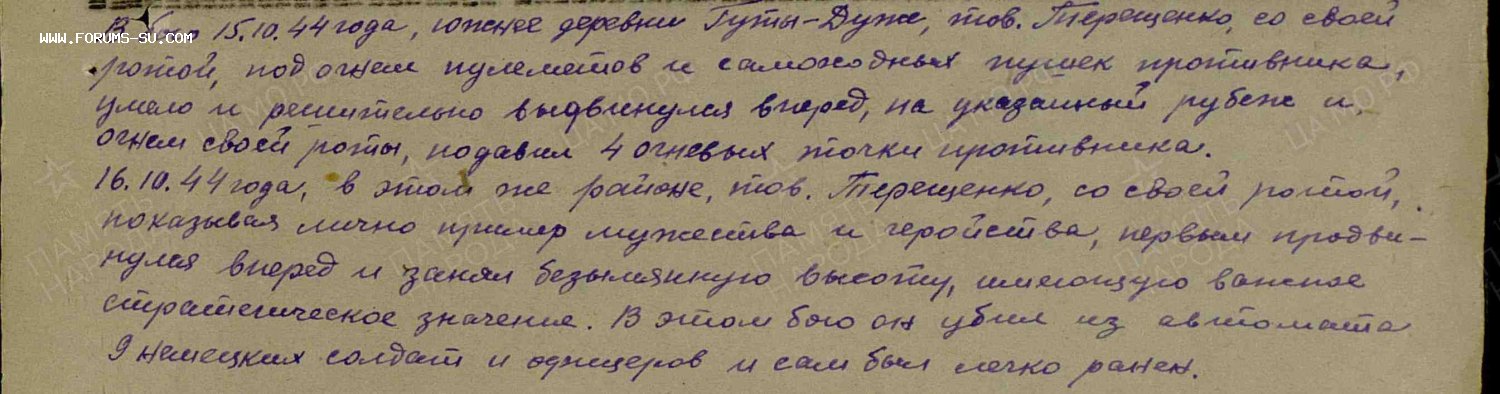 В бою 15.10.44 года, южнее деревни Гуты-Дуже, тов. Терещенко, со своей
WWW.FORUMS-SU.COM
ротой, под огнем пулеметов и самоходных пушек противника,
умело и решительно выдвинулся вперед, на указанный рубеж и
огнем своей роты, подавил 4 огневых точки противника.
16.10.44 года, в этом же районе, тов. Терещенко, со своей ротой,
показывая лично пример мужества и геройства, первым продви-
нулся вперед и занял безымянную высоту, имеющую важное
стратегическое значение. В этом бою он убил из автомата
9 немецких солдат и офицеров и сам был легко ранен.
ПАМЯТЬ НАРОДА
ЦАМО РФ